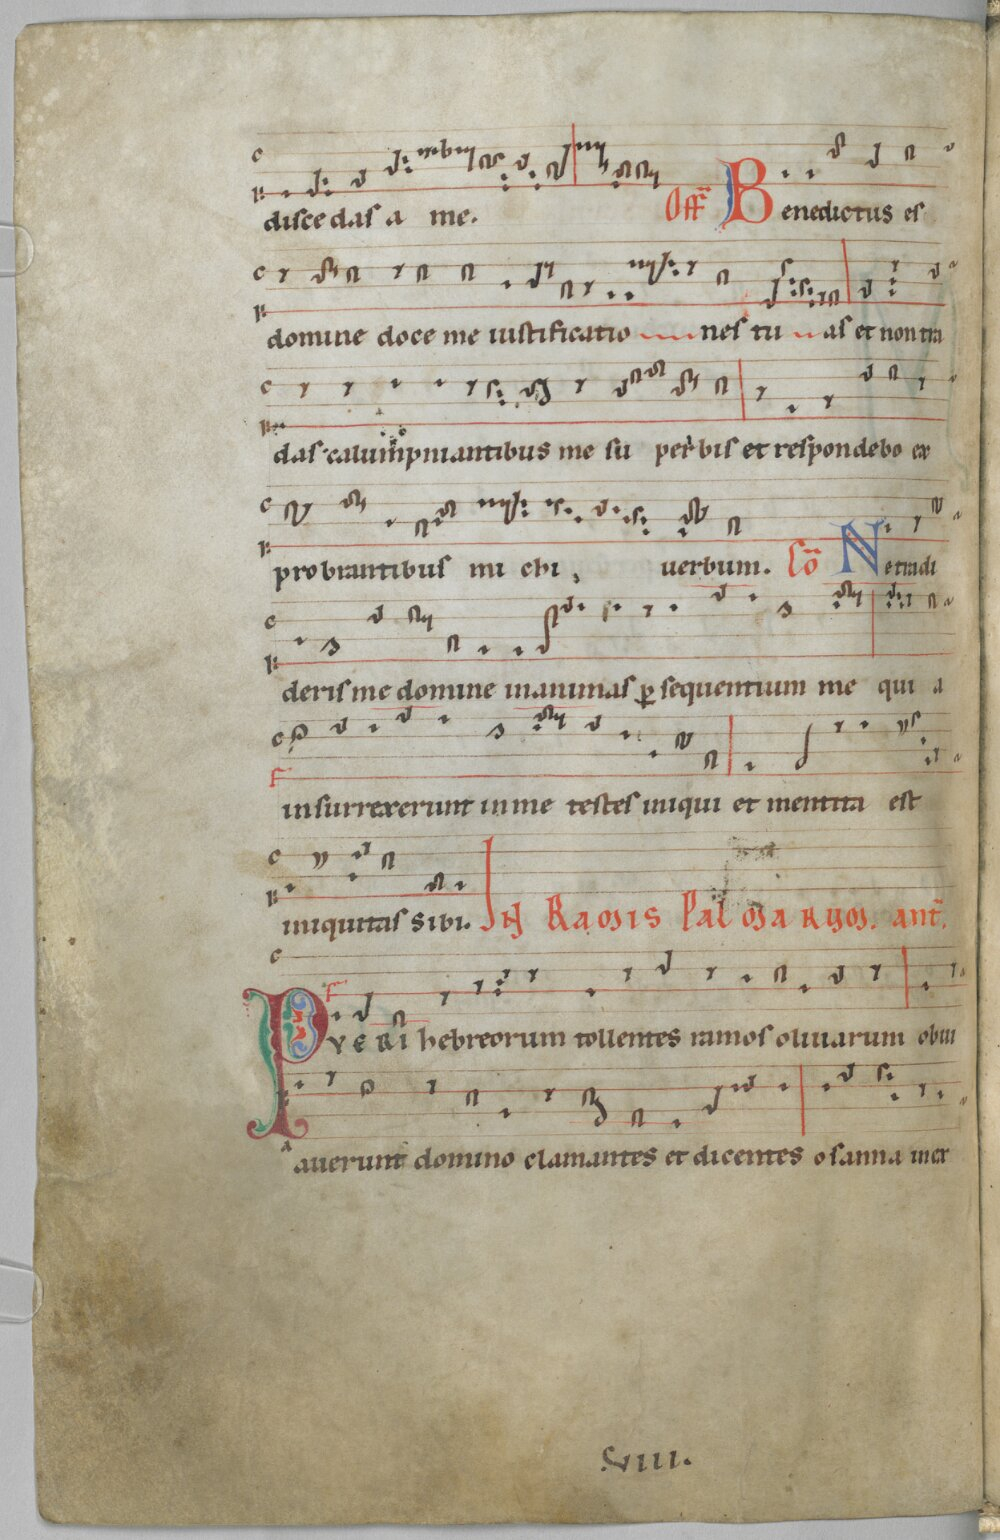 discedas a me. Off Benedictus es
domine doce me iustificationes tuas et non tra
das calumpniantibus me superbis et respondebo ex
probrantibus michi uerbum. Co Ne tradi
deris me domine in animas ꝑsequentium me qui a
insurrexerunt in me testes iniqui et mentita est
iniquitas sibi. IN RAMIS PALMARUM. ant.
PVERI hebreorum tollentes ramos oliuarum obui
auerunt domino clamantes et dicentes osanna in ex
VIII.